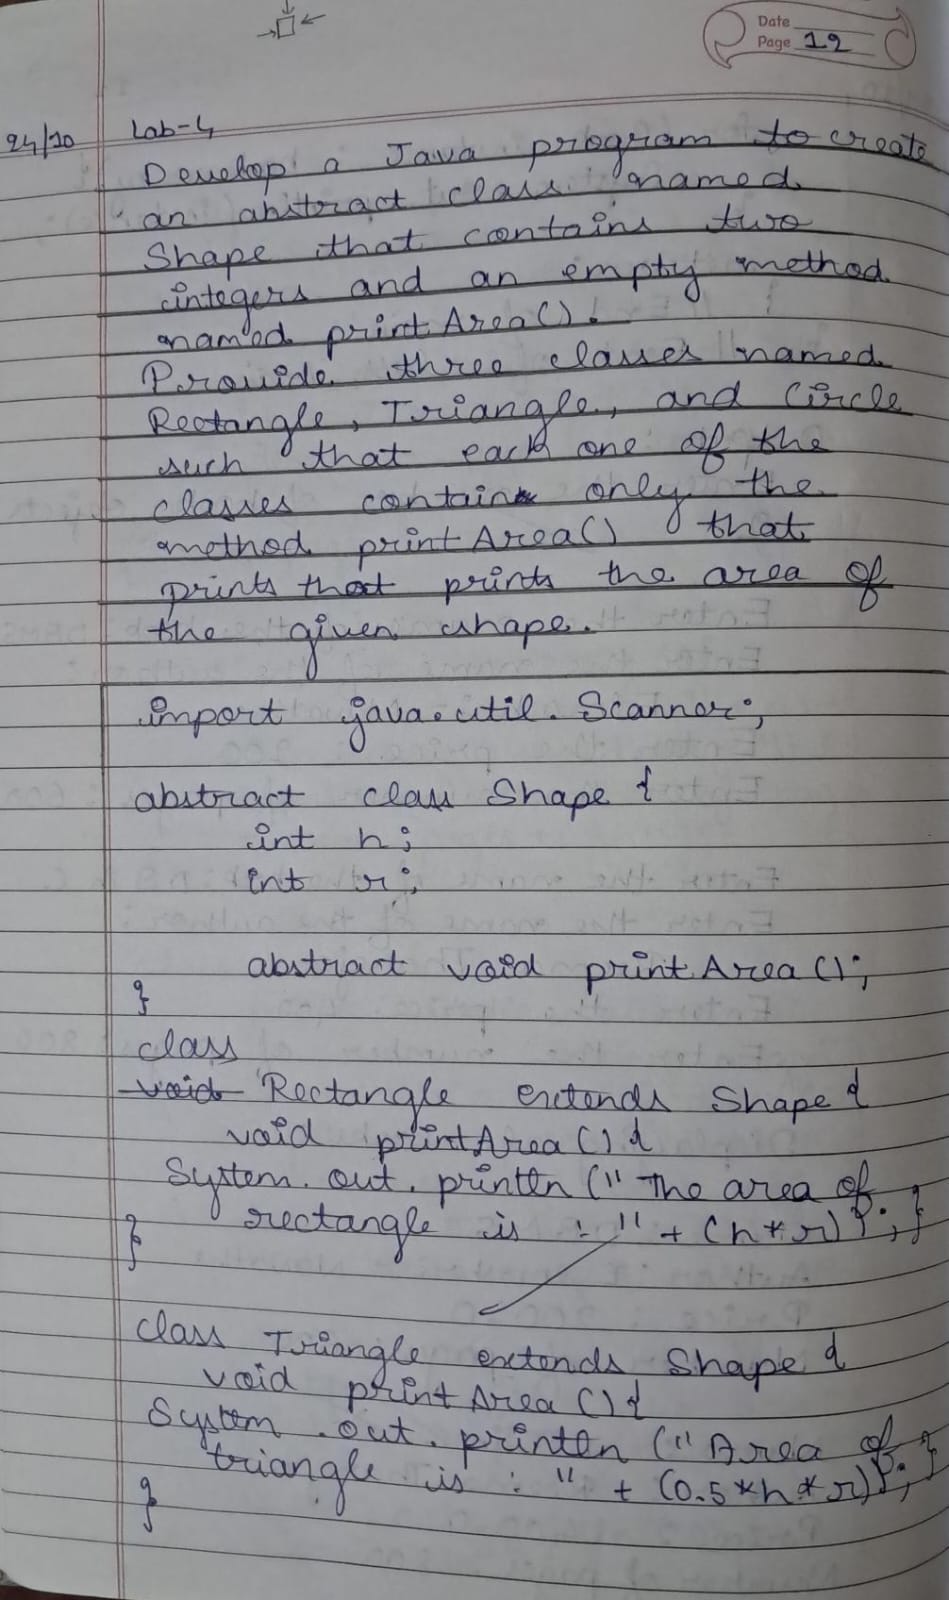 Date
Page 19
24/10 Lab-4
Develop a Java program to create
an abstract class named
Shape that contains two
integers and an empty method
named printArea().
Provide three classes named
Rectangle, Triangle, and Circle
such that each one of the
classes contain only the
method printArea() that
prints that prints the area of
the given shape.
import java.util.Scanner;
abstract class Shape {
int h;
int r;
abstract void printArea();
}
class
void Rectangle extends Shape {
void printArea() {
System.out.println("The area of
rectangle is : " + (h*r)); }
}
class Triangle extends Shape {
void printArea() {
System.out.println("Area of
triangle is : " + (0.5*h*r)); }
}